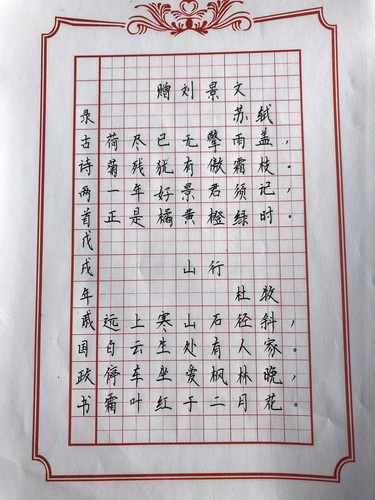 赠刘景文
苏轼
荷尽已无擎雨盖，
菊残犹有傲霜枝。
一年好景君须记，
正是橘黄橙绿时。
山行
杜牧
远上寒山石径斜，
白云生处有人家。
停车坐爱枫林晚，
霜叶红于二月花。
录古诗两首戊戌年戚国政书